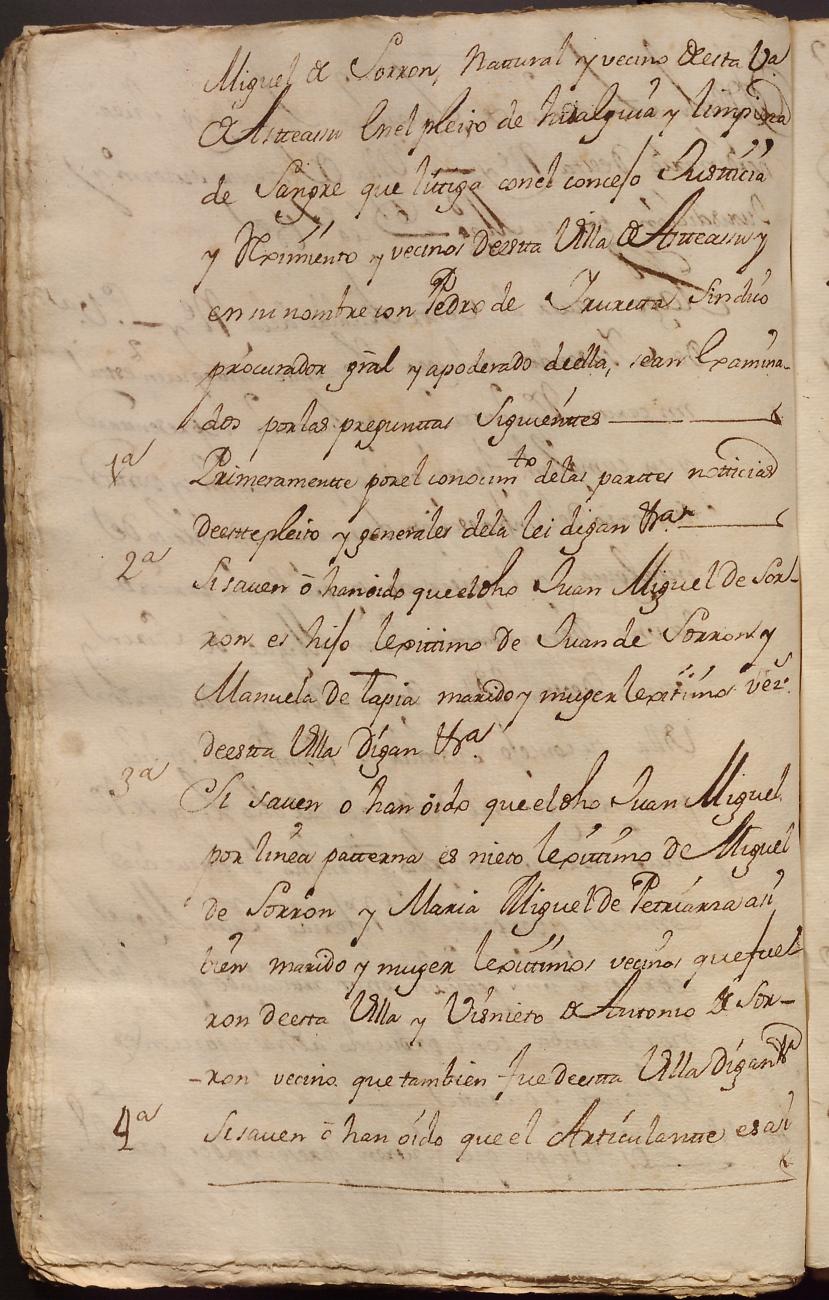 Miguel de Sorron, Natural y vecino de esta Va
de Astteasu En el pleito de hidalguia y limpieza
de Sangre que littiga con el concejo Justticia
y Reximiento y vecinos de estta Villa de Astteasu y
en su nombre con Pedro de Yruretta Sindico
procurador gral y apoderado de ella, sean Examina-
dos por las preguntas Siguienttes
1a Primeramentte por el conocimto de las parttes notticias
de estte pleito y generales de la lei digan &a
2a Si saven o han oido que el dho Juan Miguel de Sor-
ron es hijo lexittimo de Juan de Sorron y
Manuela de Tapia marido y muger lexitimos vezs
de estta Villa Digan &a
3a Si saven o han oido que el dho Juan Miguel
por linea patterna es nieto lexittimo de Miguel
de Sorron y Maria Miguel de Petriarza asi
bien marido y muger lexittimos vecinos que fuer
ron de esta Villa y Visnieto de Antonio de Sor-
-ron vecino que tambien fue de estta Villa Digan &a
4a Si saven o han oido que el Articulantte es asi